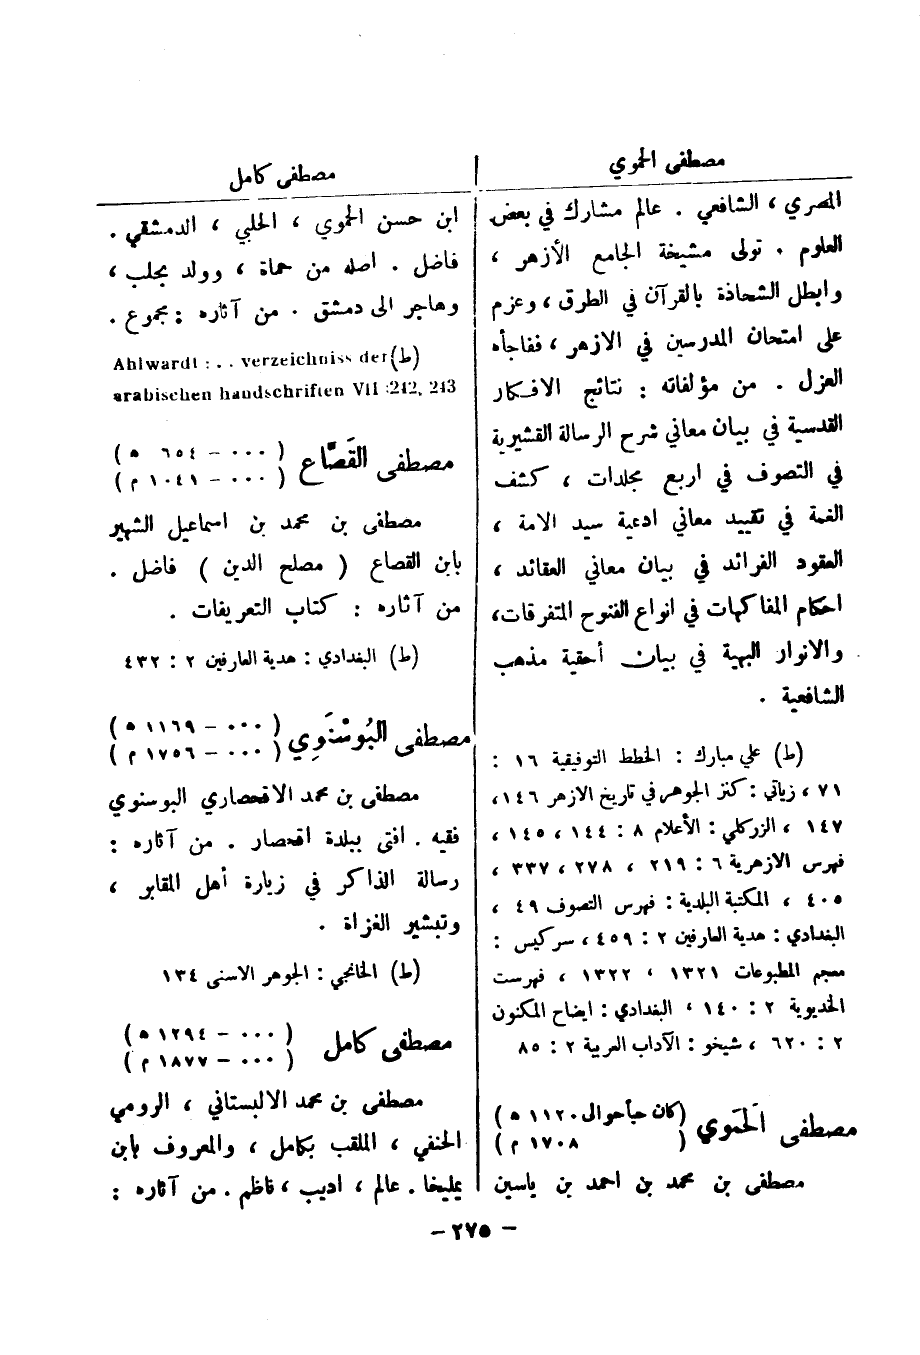 مصطفى الحموي
المصري ، الشافعي . عالم مشارك في بعض
العلوم . تولى مشيخة الجامع الأزهر ،
وابطل الشحاذة بالقرآن في الطرق ، وعزم
على امتحان المدرسين في الازهر ، ففاجأه
العزل . من مؤلفاته : نتائج الافكار
القدسية في بيان معاني شرح الرسالة القشيرية
في التصوف في اربع مجلدات ، كشف
الغمة في تقييد معاني ادعية سيد الامة ،
العقود الفرائد في بيان معاني العقائد ،
احكام المفاكهات في انواع الفنوح المتفرقات،
والانوار البهية في بيان أحقية مذهب
الشافعية .
(ط) علي مبارك : الخطط التوفيقية ١٦ :
٧١ ، زياتي : كنز الجوهر في تاريخ الازهر ١٤٦،
١٤٧ ، الزركلي : الأعلام ٨ : ١٤٤ ، ١٤٥ ،
فهرس الازهرية ٦ : ٢١٩ ، ٢٧٨ ، ٣٣٧ ،
٤٠٥ ، المكتبة البلدية : فهرس التصوف ٤٩ ،
البغدادي : هدية العارفين ٢ : ٤٥٩ ، سركيس :
معجم المطبوعات ١٣٢١ ، ١٣٢٢ ، فهرست
الخديوية ٢ : ١٤٠ ، البغدادي : ايضاح المكنون
٢ : ٦٢٠ ، شيخو : الآداب العربية ٢ : ٨٥
مصطفى الحَمَوي (كان حياً حوالى ١١٢٠ ه)
( ١٧٠٨ م)
مصطفى بن محمد بن احمد بن ياسين
مصطفى كامل
ابن حسن الحموي ، الحلبي ، الدمشقي .
فاضل . اصله من حماة ، وولد بحلب ،
وهاجر الى دمشق . من آثاره : مجموع .
(ط) Ahlwardt : . . verzeichniss der
arabischen handschriften VII :242, 243
مصطفى القَصّاع ( ٠٠٠ – ٦٥٤ ه )
( ٠٠٠ – ١٠٤١ م )
مصطفى بن محمد بن اسماعيل الشهير
بابن القصاع ( مصلح الدين ) فاضل .
من آثاره : كتاب التعريفات .
(ط) البغدادي : هدية العارفين ٢ : ٤٣٢
مصطفى البُوسْنَوِي ( ٠٠٠ – ١١٦٩ ه )
( ٠٠٠ – ١٧٥٦ م )
مصطفى بن محمد الاقحصاري البوسنوي
فقيه . افتى ببلدة اقحصار . من آثاره :
رسالة الذاكر في زيارة أهل المقابر ،
وتبشير الغزاة .
(ط) الخانجي : الجوهر الاسنى ١٣٤
مصطفى كامل ( ٠٠٠ – ١٢٩٤ ه )
( ٠٠٠ – ١٨٧٧ م )
مصطفى بن محمد الالبستاني ، الرومي
الحنفي ، الملقب بكامل ، والمعروف بابن
يمليخا . عالم ، اديب ، ناظم . من آثاره :
– ٢٧٥ –